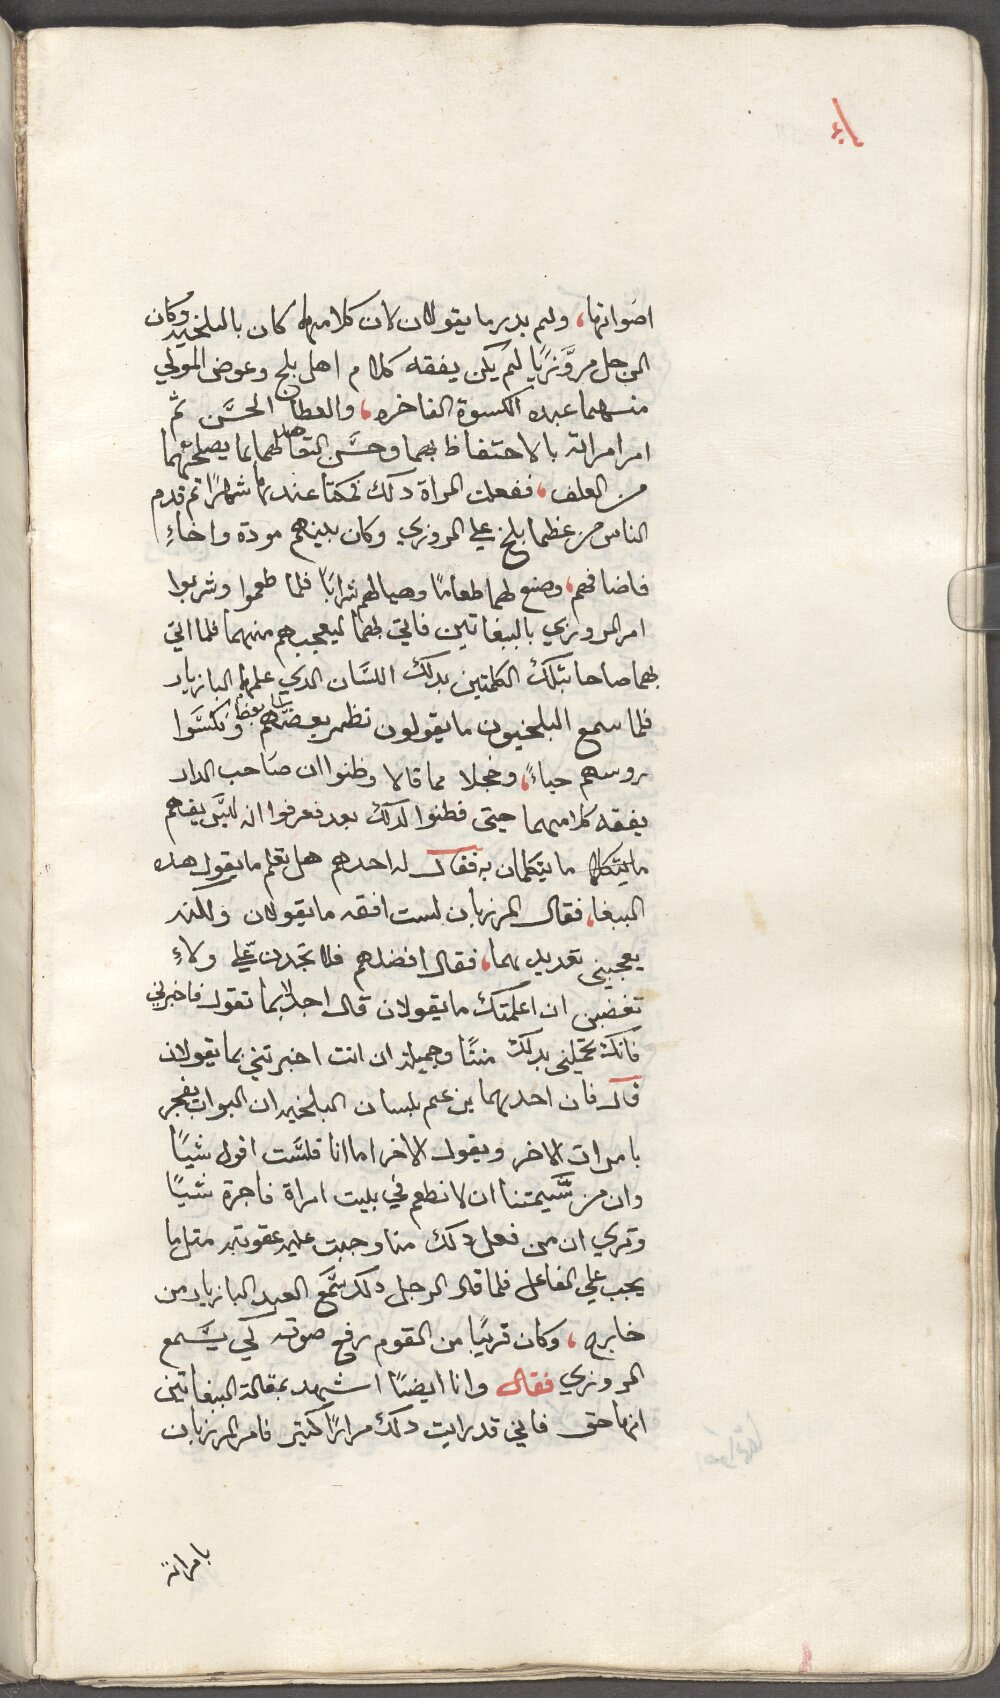 اصواتها، ولم يدر ما يقولان لان كلامهما كان بالبلخيه وكان
الرجل مروَّزيًا لم يكن يفقه كلام اهل بلخ وعوض المولي
منهما عبده الكسوة الفاخره، والعطا الحسَن ثم
امر امراته بالاحتفاظ بهما وحسَن التعاهد لهما بما يصلحهما
من العلف، ففعلت المراة دلك فمكثا عندها شهرًا ثم قدم
الناس من عظما بلخ علي المروزي وكان بينهم مودة واخاءِ
فاضافهم، وصنع لهما طعامًا وهيا لهم شرابًا فلما طعموا وشربوا
امر المروزي بالببغاتين فاتي بهما ليعجبهم منهما فلما اتي
بهما صاحا بتلك الكلمتين بدلك اللسَان الدي علمهما البازيار
فلما سمع البلخيون ما يقولون نظر بعضهم بعضا ونكسَّوا
روسهم حياءً، وخجلا مما قالا وظنوا ان صَاحب الدار
يفقه كلامهما حيتي فطنوا لدلك بعد فعرفوا انه ليسَ يفهم
ما يتكلما ما يتكلمان به فقال له احدهم هل تعلم ما يقول هده
الببغا، فقال المرزبان لست افقه ما يقولان ولكنه
يعجبني تغديدهما، فقال افضلهم فلا تجدن عَلي ولاءِ
تغضبن ان اعلمتك ما يقولان قال اجل بما تقول فاخبرني
فانك تحملني بدلك منتًا وجميلة ان انت اخبرتني بما يقولان
قال فان احدهما يزعم بلسان البلخيه ان البواب يفجر
بامرات الاخر ويقول الاخر اما انا فلسَت اقول شيًا
وان من سَّيمتنا ان لا نطعم في بيت امراة فاجرة شيًا
ونري ان من فعل دلك منا وجبت عليه عقوبته مثل ما
يجب علي الفاعل فلما قال الرجل دلك سَّمع العبد البازيار من
خارج، وكان قريبًا من القوم رفع صوته لكي يسَّمع
المروزي فقال وانا ايضًا اشهد بمقالة الببغاتين
انها حق فاني قد رايت دلك مرارًا كتير فامر المرزبان
بامراته